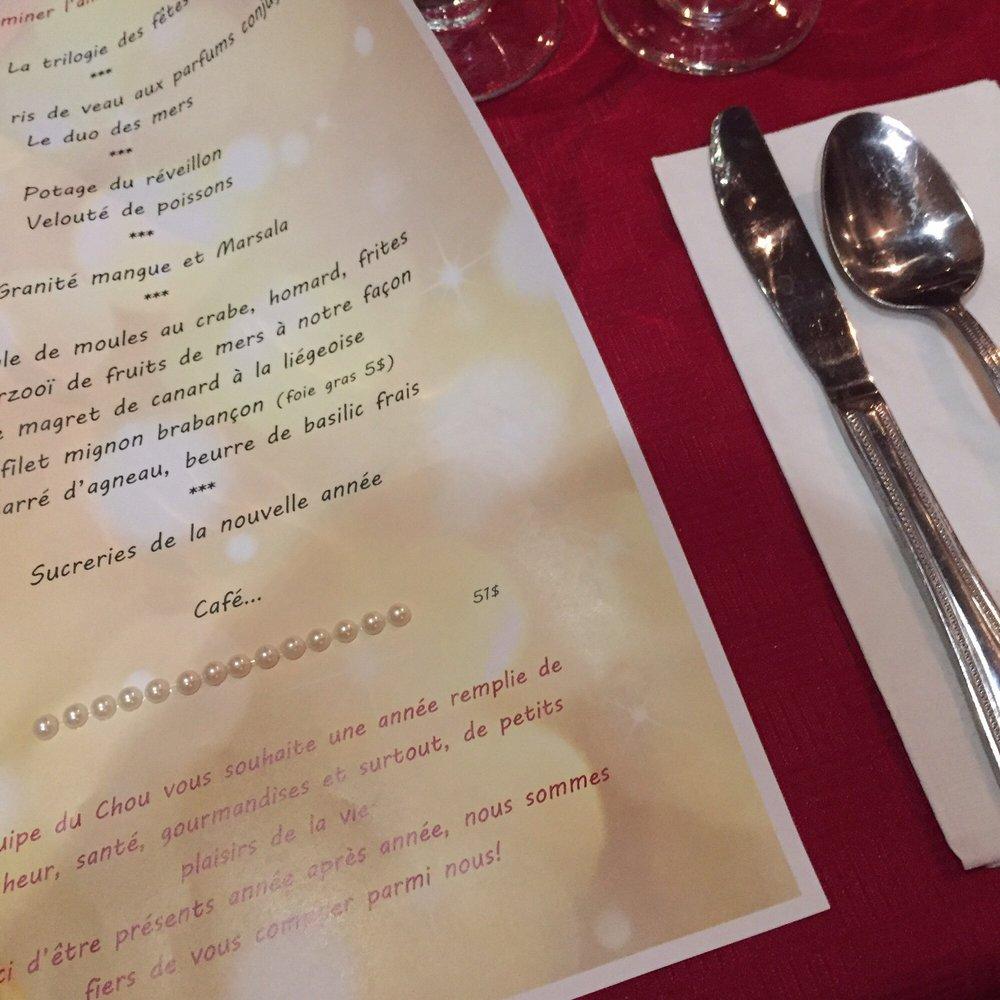 miner l'an
La trilogie des fêtes
***
ris de veau aux parfums conju
Le duo des mers
***
Potage du réveillon
Velouté de poissons
***
Granité mangue et Marsala
***
le de moules au crabe, homard, frites
rzooï de fruits de mers à notre façon
e magret de canard à la liégeoise
filet mignon brabançon (foie gras 5$)
arré d'agneau, beurre de basilic frais
***
Sucreries de la nouvelle année
Café...
51$
uipe du Chou vous souhaite une année remplie de
heur, santé, gourmandises et surtout, de petits
plaisirs de la vie
ci d'être présents année après année, nous sommes
fiers de vous compter parmi nous!